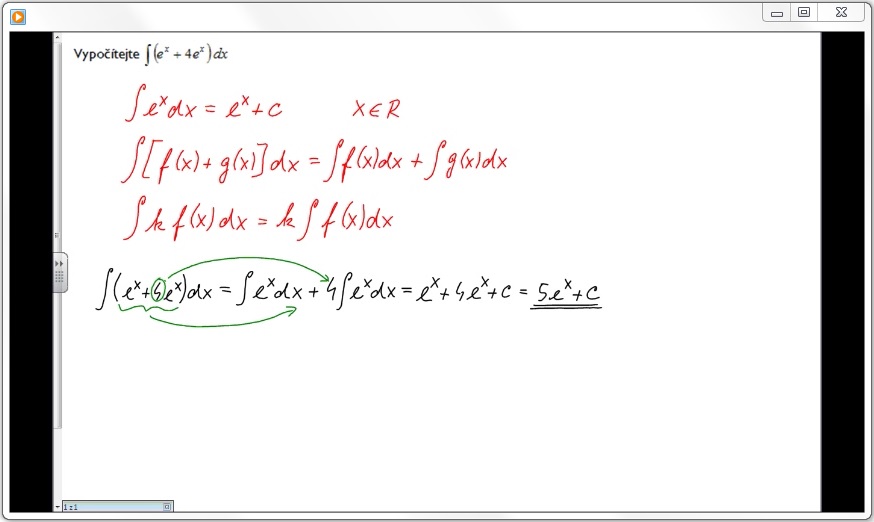 Vypočítejte ∫(eˣ + 4eˣ)dx
∫eˣdx = eˣ + c x ∈ R
∫[f(x) + g(x)]dx = ∫f(x)dx + ∫g(x)dx
∫k f(x)dx = k∫f(x)dx
∫(eˣ + 4eˣ)dx = ∫eˣdx + 4∫eˣdx = eˣ + 4eˣ + c = 5eˣ + c
1 z 1